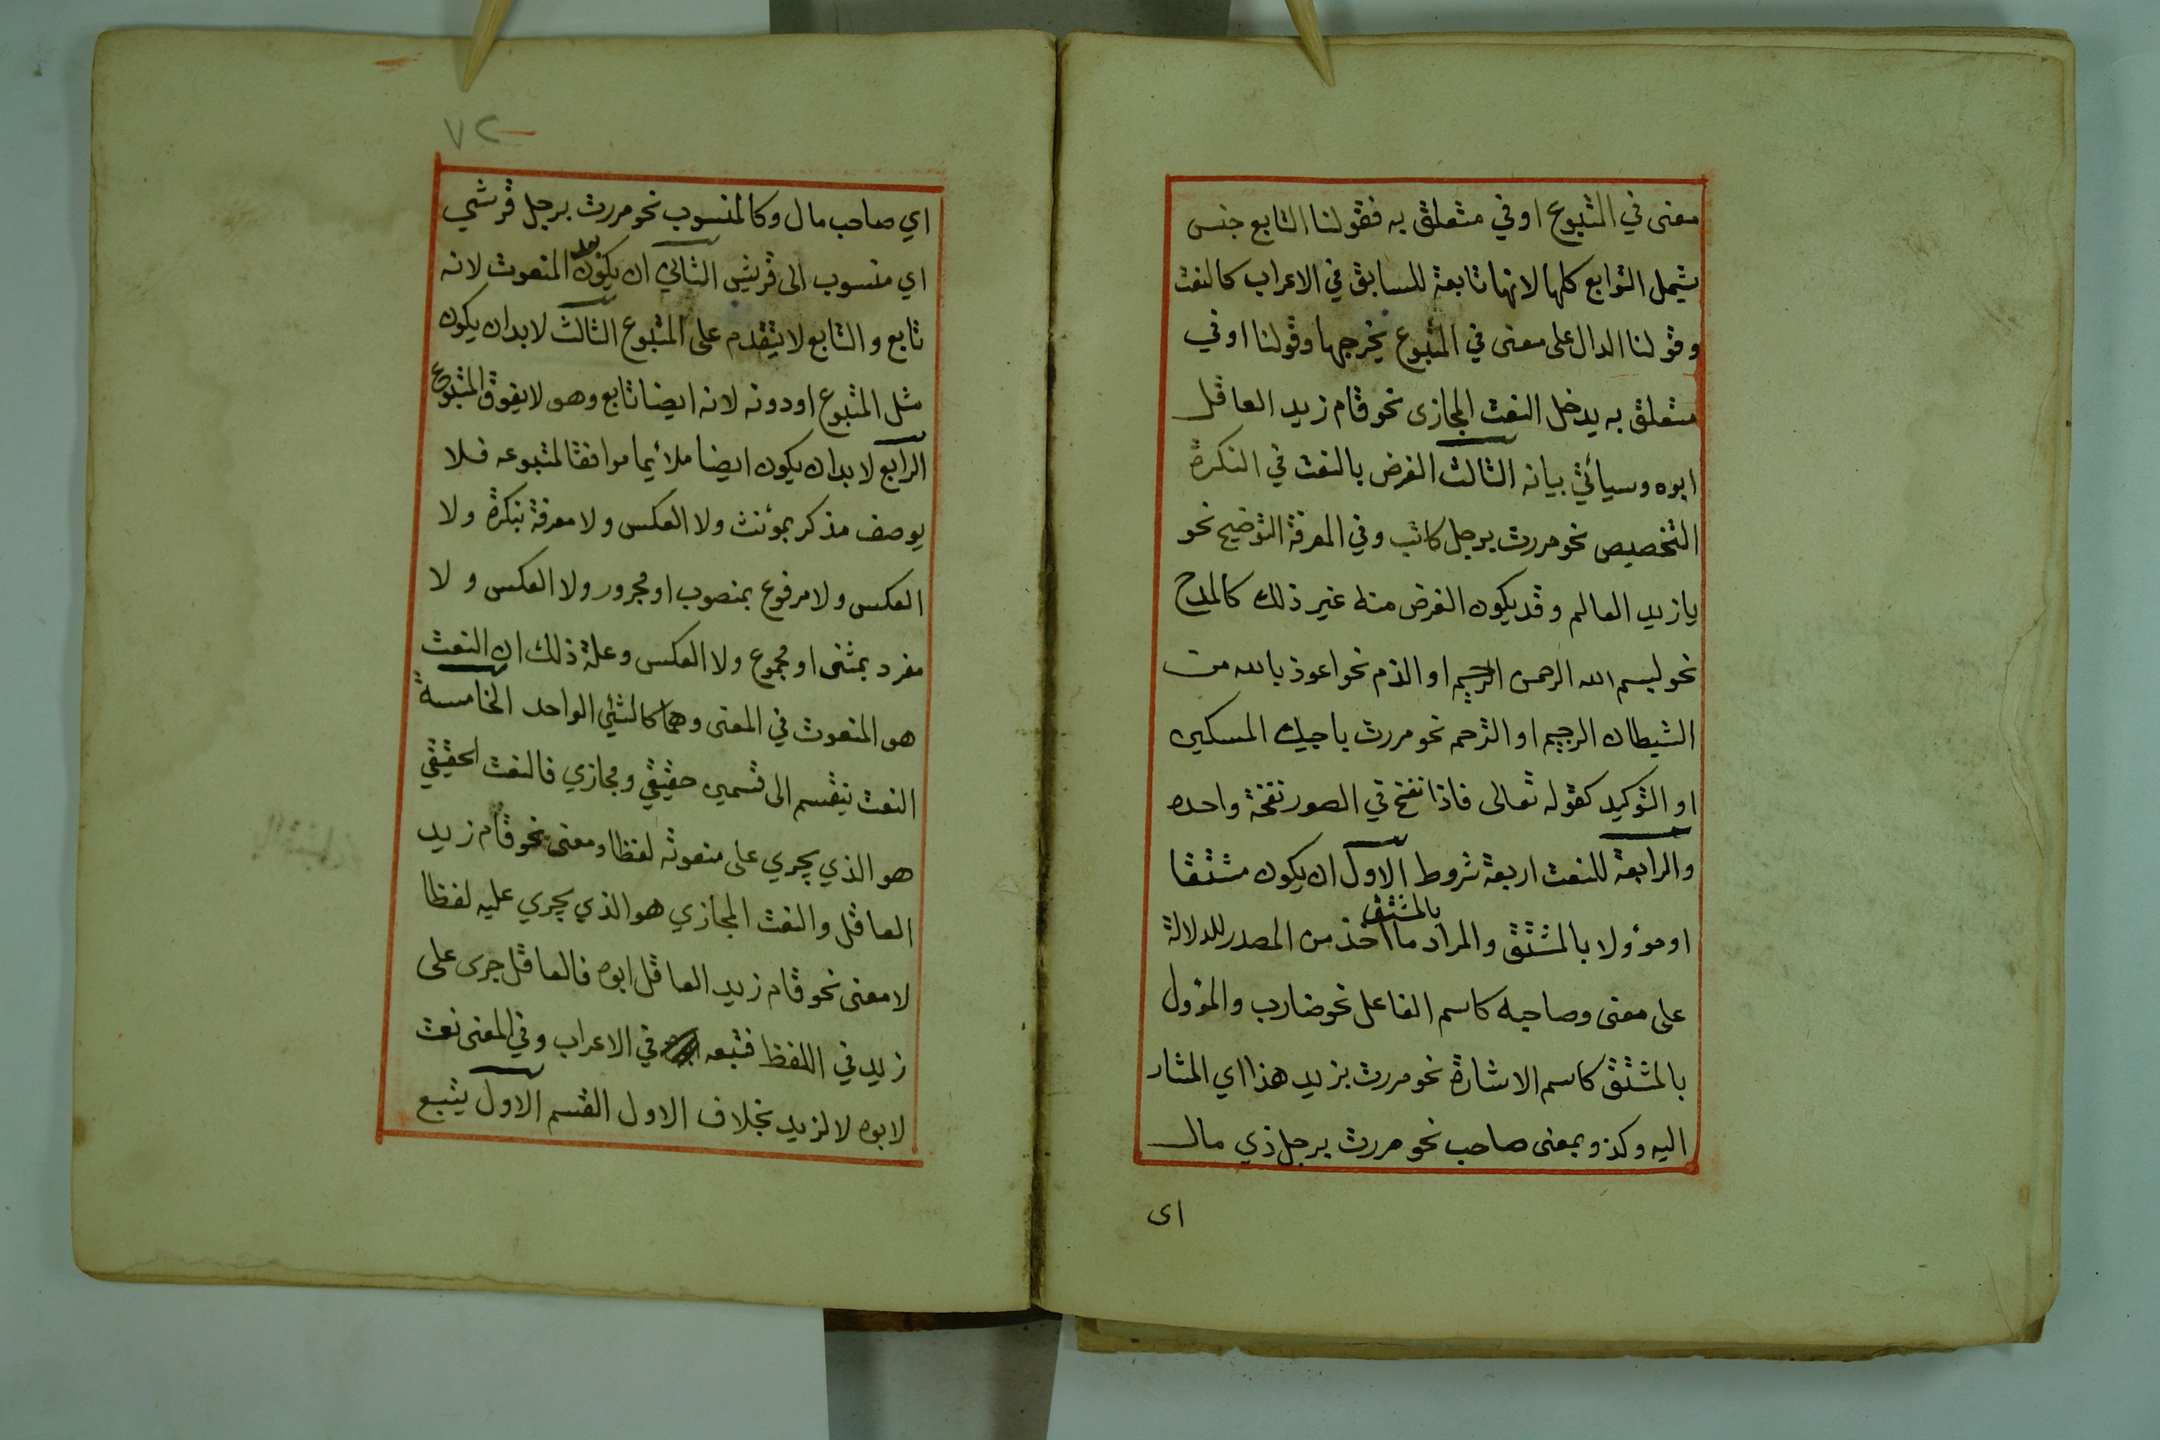 معنى في المتبوع او في متعلق به فقولنا التابع جنس
يشمل التوابع كلها لانها تابعة للسابق في الاعراب كالنعت
وقولنا الدال على معنى في المتبوع يخرجها وقولنا او في
متعلق به يدخل النعت المجازى نحو قام زيد العاقل
ابوه وسيأتي بيانه الثالث الغرض بالنعت في النكرة
التخصيص نحو مررت برجل كاتب وفي المعرفة التوضيح نحو
يا زيد العالم وقد يكون الغرض منه غير ذلك كالمدح
نحو بسم الله الرحمن الرحيم او الذم نحو اعوذ بالله من
الشيطان الرجيم او الترحم نحو مررت باخيك المسكين
او التوكيد كقوله تعالى فاذا نفخ في الصور نفخة واحده
والرابعة للنعت اربعة شروط الاول ان يكون مشتقا
او مؤولا بالمشتق والمراد بالمشتق ما اخذ من المصدر للدلالة
على معنى وصاحبه كاسم الفاعل نحو ضارب والمؤول
بالمشتق كاسم الاشارة نحو مررت بزيد هذا اي المشار
اليه وكذو بمعنى صاحب نحو مررت برجل ذي مال
اى
٧٢
اي صاحب مال وكالمنسوب نحو مررت برجل قرشي
اي منسوب الى قريش الثاني ان يكون بعد المنعوت لانه
تابع والتابع لا يتقدم على المتبوع الثالث لا بد ان يكون
مثل المتبوع او دونه لانه ايضا تابع وهو لا يفوق المتبوع
الرابع لا بد ان يكون ايضا ملائما موافقا لمتبوعه فلا
يوصف مذكر بمؤنث ولا العكس ولا معرفة بنكرة ولا
العكس ولا مرفوع بمنصوب او مجرور ولا العكس ولا
مفرد بمثنى او مجموع ولا العكس وعلة ذلك ان النعت
هو المنعوت في المعنى وهما كالشئي الواحد الخامسة
النعت ينقسم الى قسمين حقيقي ومجازي فالنعت الحقيقي
هو الذي يجري على منعوته لفظا ومعنى نحو قام زيد
العاقل والنعت المجازي هو الذي يجري عليه لفظا
لا معنى نحو قام زيد العاقل ابوه فالعاقل جرى على
زيد في اللفظ فتبعه في الاعراب وفي المعنى نعت
لابوه لا لزيد بخلاف الاول القسم الاول يتبع